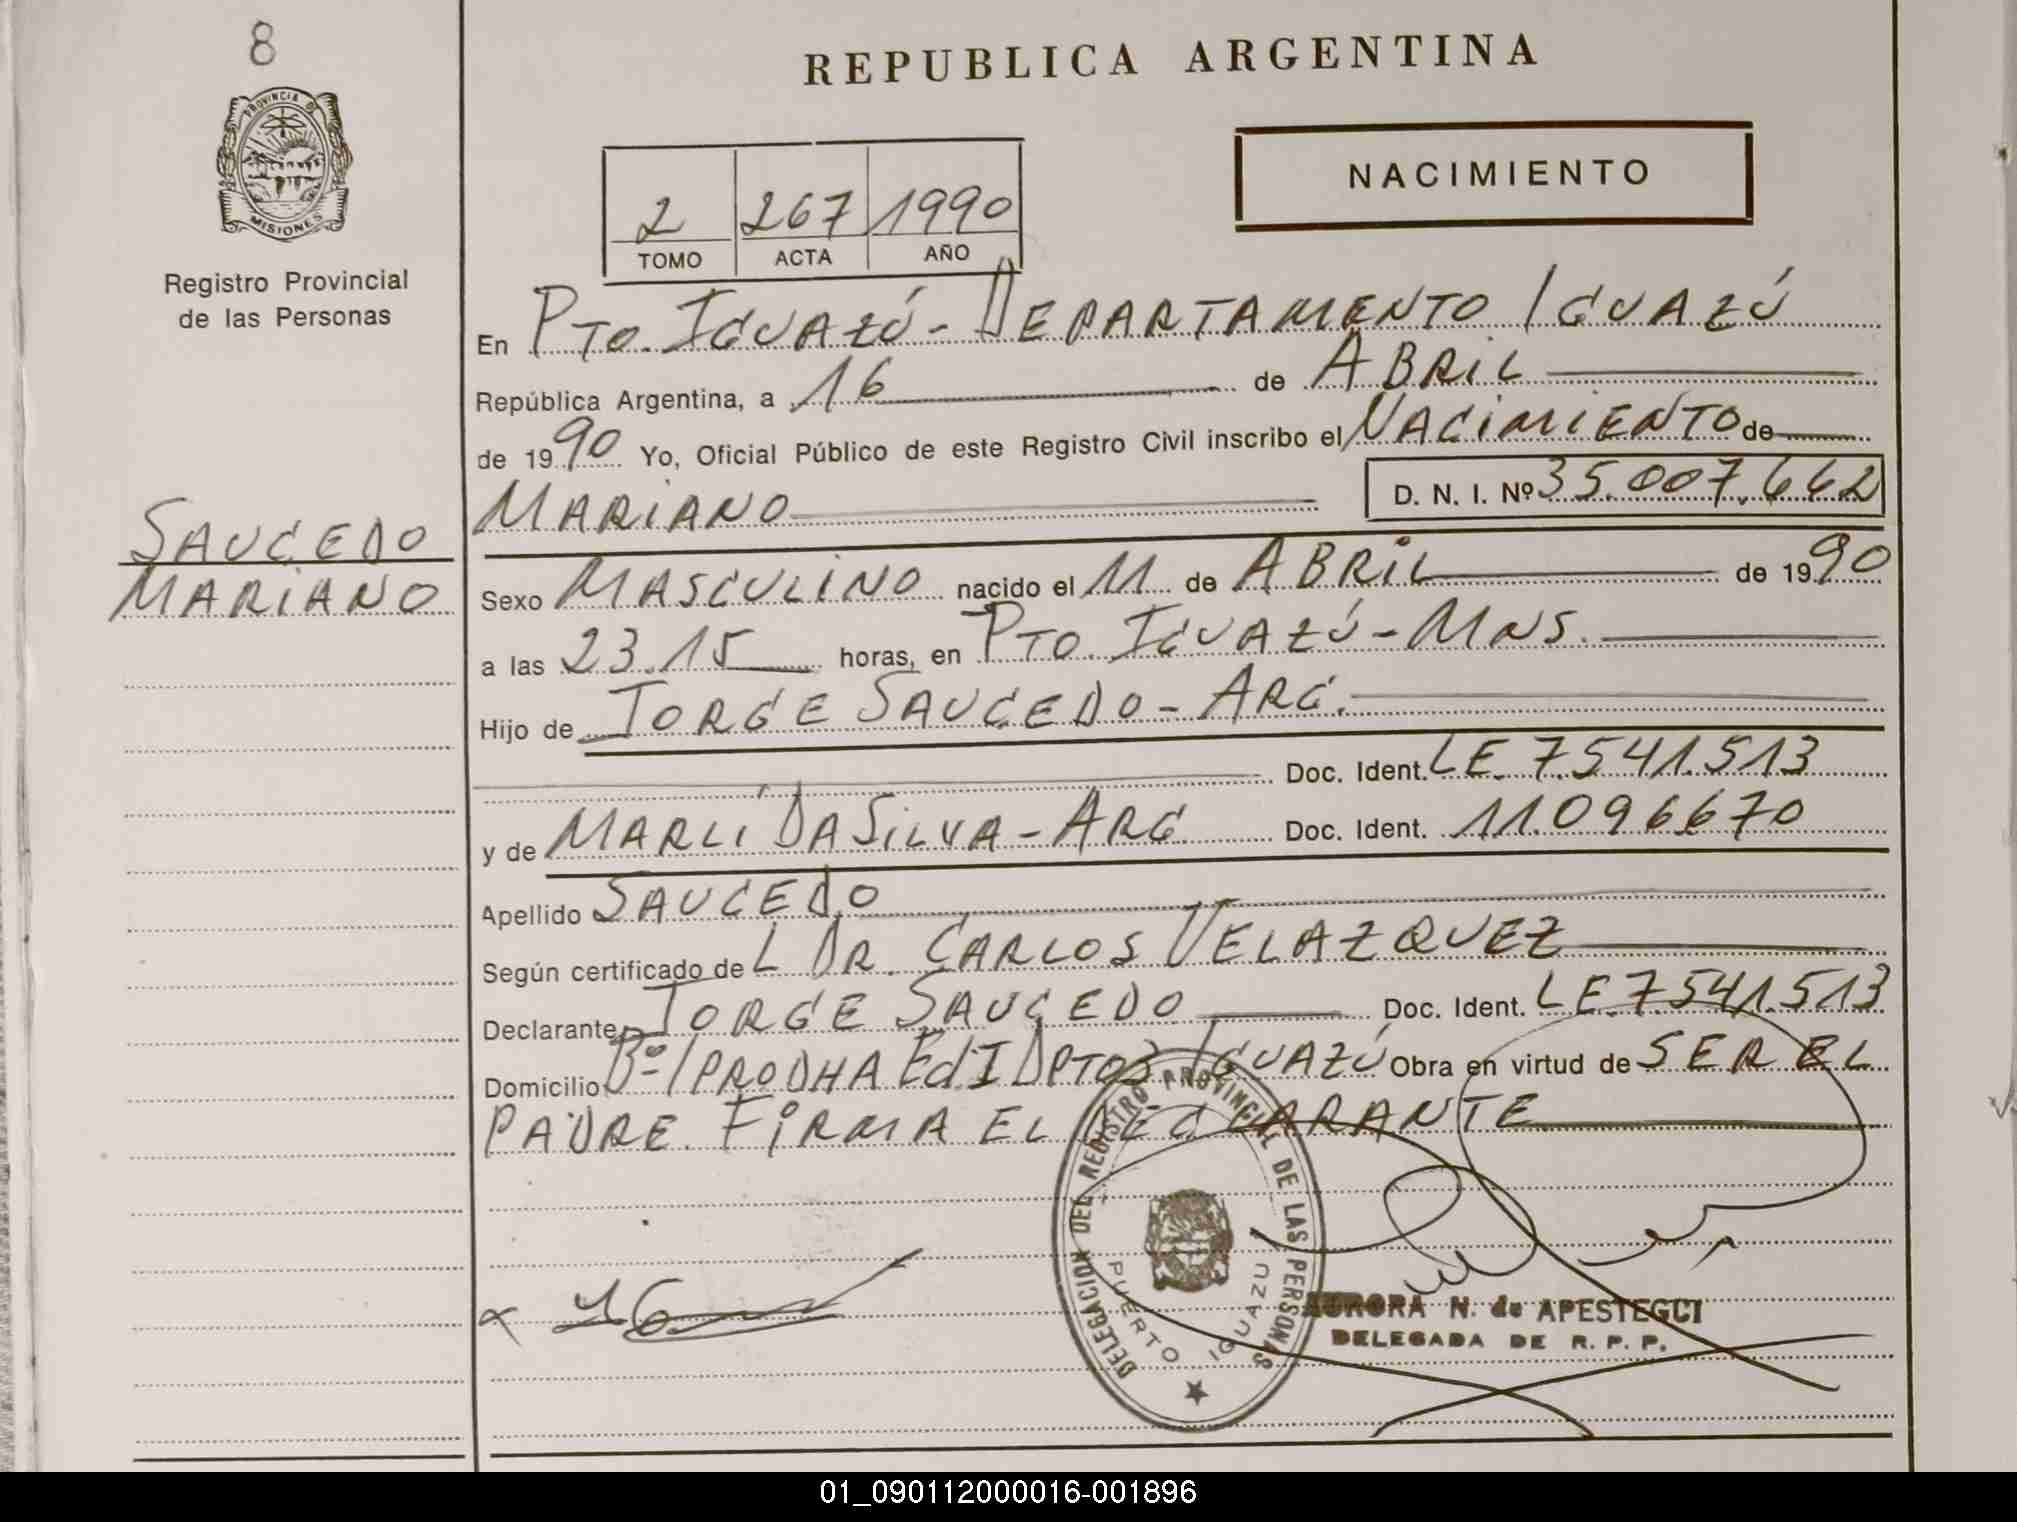 8
PROVINCIA DE
MISIONES
Registro Provincial
de las Personas
SAUCEDO
MARIANO
REPUBLICA ARGENTINA
NACIMIENTO
2 267 1990
TOMO ACTA AÑO
En PTO. IGUAZÚ - DEPARTAMENTO IGUAZÚ
República Argentina, a 16 de ABRIL
de 1990 Yo, Oficial Público de este Registro Civil inscribo el NACIMIENTO de
MARIANO D. N. I. Nº 35.007.662
Sexo MASCULINO nacido el 11 de ABRIL de 1990
a las 23.15 horas, en PTO. IGUAZÚ - MNS.
Hijo de JORGE SAUCEDO - ARG.
Doc. Ident. LE. 7.541.513
y de MARLI DA SILVA - ARG. Doc. Ident. 11.096.670
Apellido SAUCEDO
Según certificado de L DR. CARLOS VELAZQUEZ
Declarante JORGE SAUCEDO Doc. Ident. LE. 7.541.513
Domicilio Bº IPRODHA Ed I DPTO 3 IGUAZÚ Obra en virtud de SER EL
PADRE. FIRMA EL DECLARANTE
DELEGACION DEL REGISTRO PROVINCIAL DE LAS PERSONAS
PUERTO IGUAZU
AURORA N. de APESTEGUI
DELEGADA DE R. P. P.
01_090112000016-001896